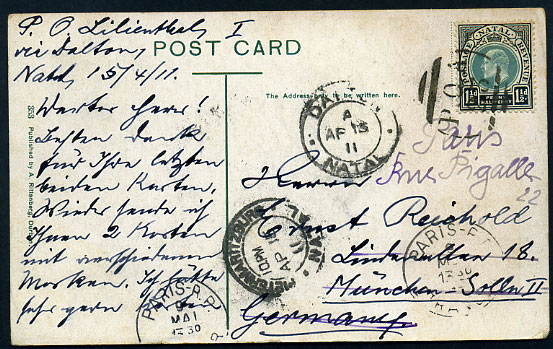 P. O. Lilienthal, I
via Dalton,
Natal, 15/4/11.
POST CARD
The Address only to be written here.
POSTAGE NATAL REVENUE
1½d 1½d
Werter Herr!
Besten Dank
für Ihre letzten
beiden Karten.
Wieder sende ich
Ihnen 2 Karten
mit verschiedenen
Marken. Ich hätte
sehr gern
Published by A. Rittenberg, Durban
DALTON
A
AP 15
11
NATAL
Paris
Rue Pigalle
22
Herrn
Ernst Reichold
Lindenstr. 18.
München Solln II
Germany.
PIETERMARITZBURG
10 PM
AP
11
NATAL
PARIS-R.P.
MAI
1330
PARIS-R.P.